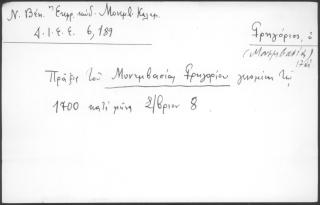 Ν. Βέη. "Εκφρ. κώδ. Μονεμβ. Καλαμ.
Δ.Ι.Ε.Ε. 6, 189
Γρηγόριος, ὁ
(Μονεμβασίας)
Πρᾶξις τοῦ Μονεμβασίας Γρηγορίου γενομένη τῷ
1700 κατὰ μῆνα 8